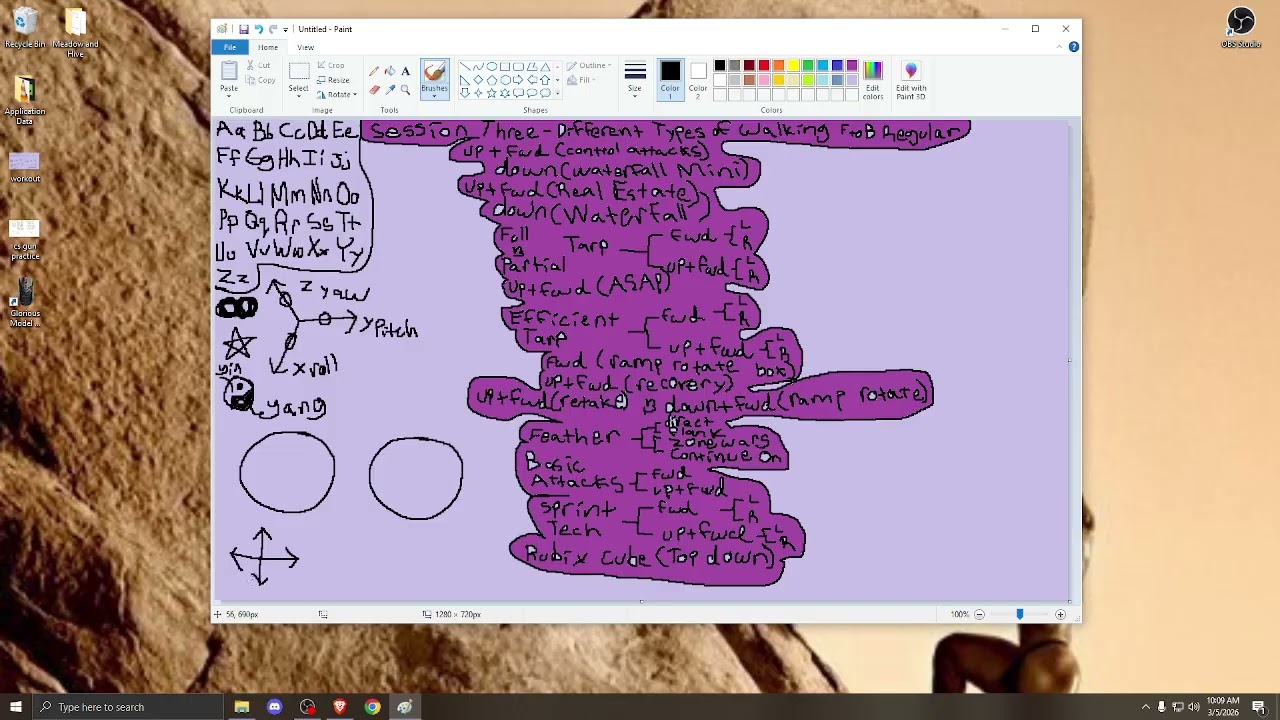 Recycle Bin
Meadow and Hive
Application Data
workout
cs gun practice
Glorious Model ...
OBS Studio
Untitled - Paint
File
Home
View
Paste
Cut
Copy
Clipboard
Select
Crop
Resize
Rotate
Image
Tools
Brushes
Shapes
Outline
Fill
Size
Color 1
Color 2
Edit colors
Colors
Edit with Paint 3D
Aa Bb Cc Dd Ee
Ff Gg Hh Ii Jj
Kk Ll Mm Nn Oo
Pp Qq Rr Ss Tt
Uu Vv Ww Xx Yy
Zz
Z yaw
y Pitch
x roll
yin
yang
Session Three - Different Types of Walking FtoB Regular
up + fwd (control attacks)
down (waterfall Mini)
up + fwd (Real Estate)
down (Waterfall)
Full n Partial Tarp
fwd L R
up + fwd L R
up + fwd (ASAP)
Efficient Tarp
fwd L R
up + fwd L R
fwd (ramp rotate box)
up + fwd (recovery)
up + fwd (retake) n down + fwd (ramp rotate)
Feather
direct
plank
zonewars
Continue On
Basic Attacks
fwd
up + fwd
Sprint Tech
fwd L R
up + fwd L R
Rubix Cube (Top down)
56, 690px
1280 × 720px
100%
Type here to search
10:09 AM
3/5/2026